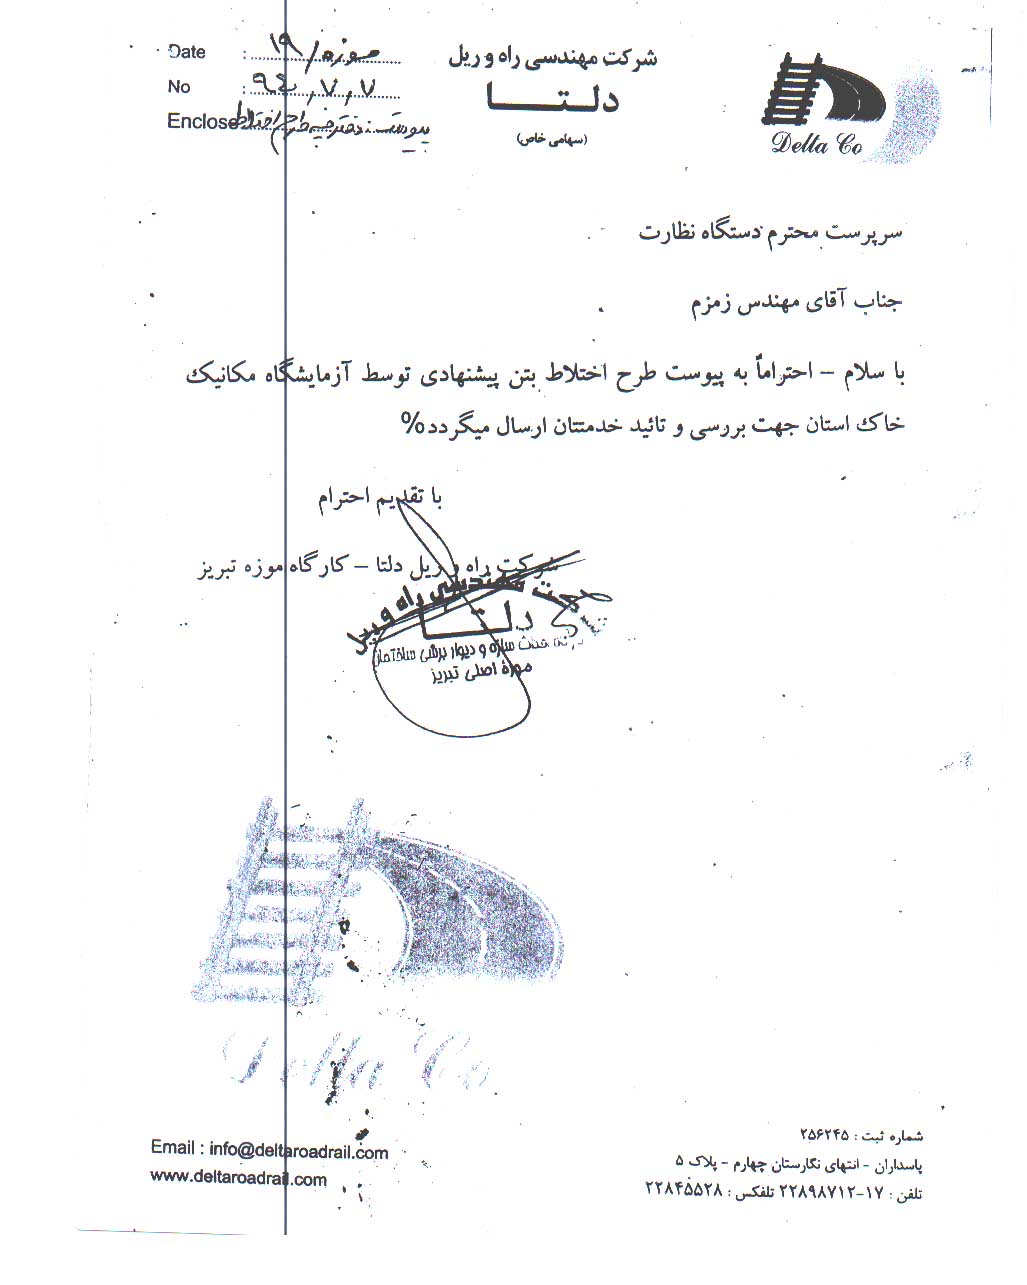 Date : موزه/۱۹
No : ۹۴,۷,۷
Enclose پیوست: دفترچه طرح اختلاط
شرکت مهندسی راه و ریل
دلتا
(سهامی خاص)
Delta Co
سرپرست محترم دستگاه نظارت
جناب آقای مهندس زمزم
با سلام – احتراماً به پیوست طرح اختلاط بتن پیشنهادی توسط آزمایشگاه مکانیک
خاک استان جهت بررسی و تائید خدمتتان ارسال میگردد%
با تقدیم احترام
شرکت راه و ریل دلتا – کارگاه موزه تبریز
شرکت مهندسی راه و ریل
دلتا
سازه و دیوار برشی ساختمان
موزه اصلی تبریز
Delta Co
Email : info@deltaroadrail.com
www.deltaroadrail.com
شماره ثبت : ۲۵۶۲۴۵
پاسداران - انتهای نگارستان چهارم - پلاک ۵
تلفن : ۱۷-۲۲۸۹۸۷۱۲ تلفکس : ۲۲۸۴۵۵۲۸